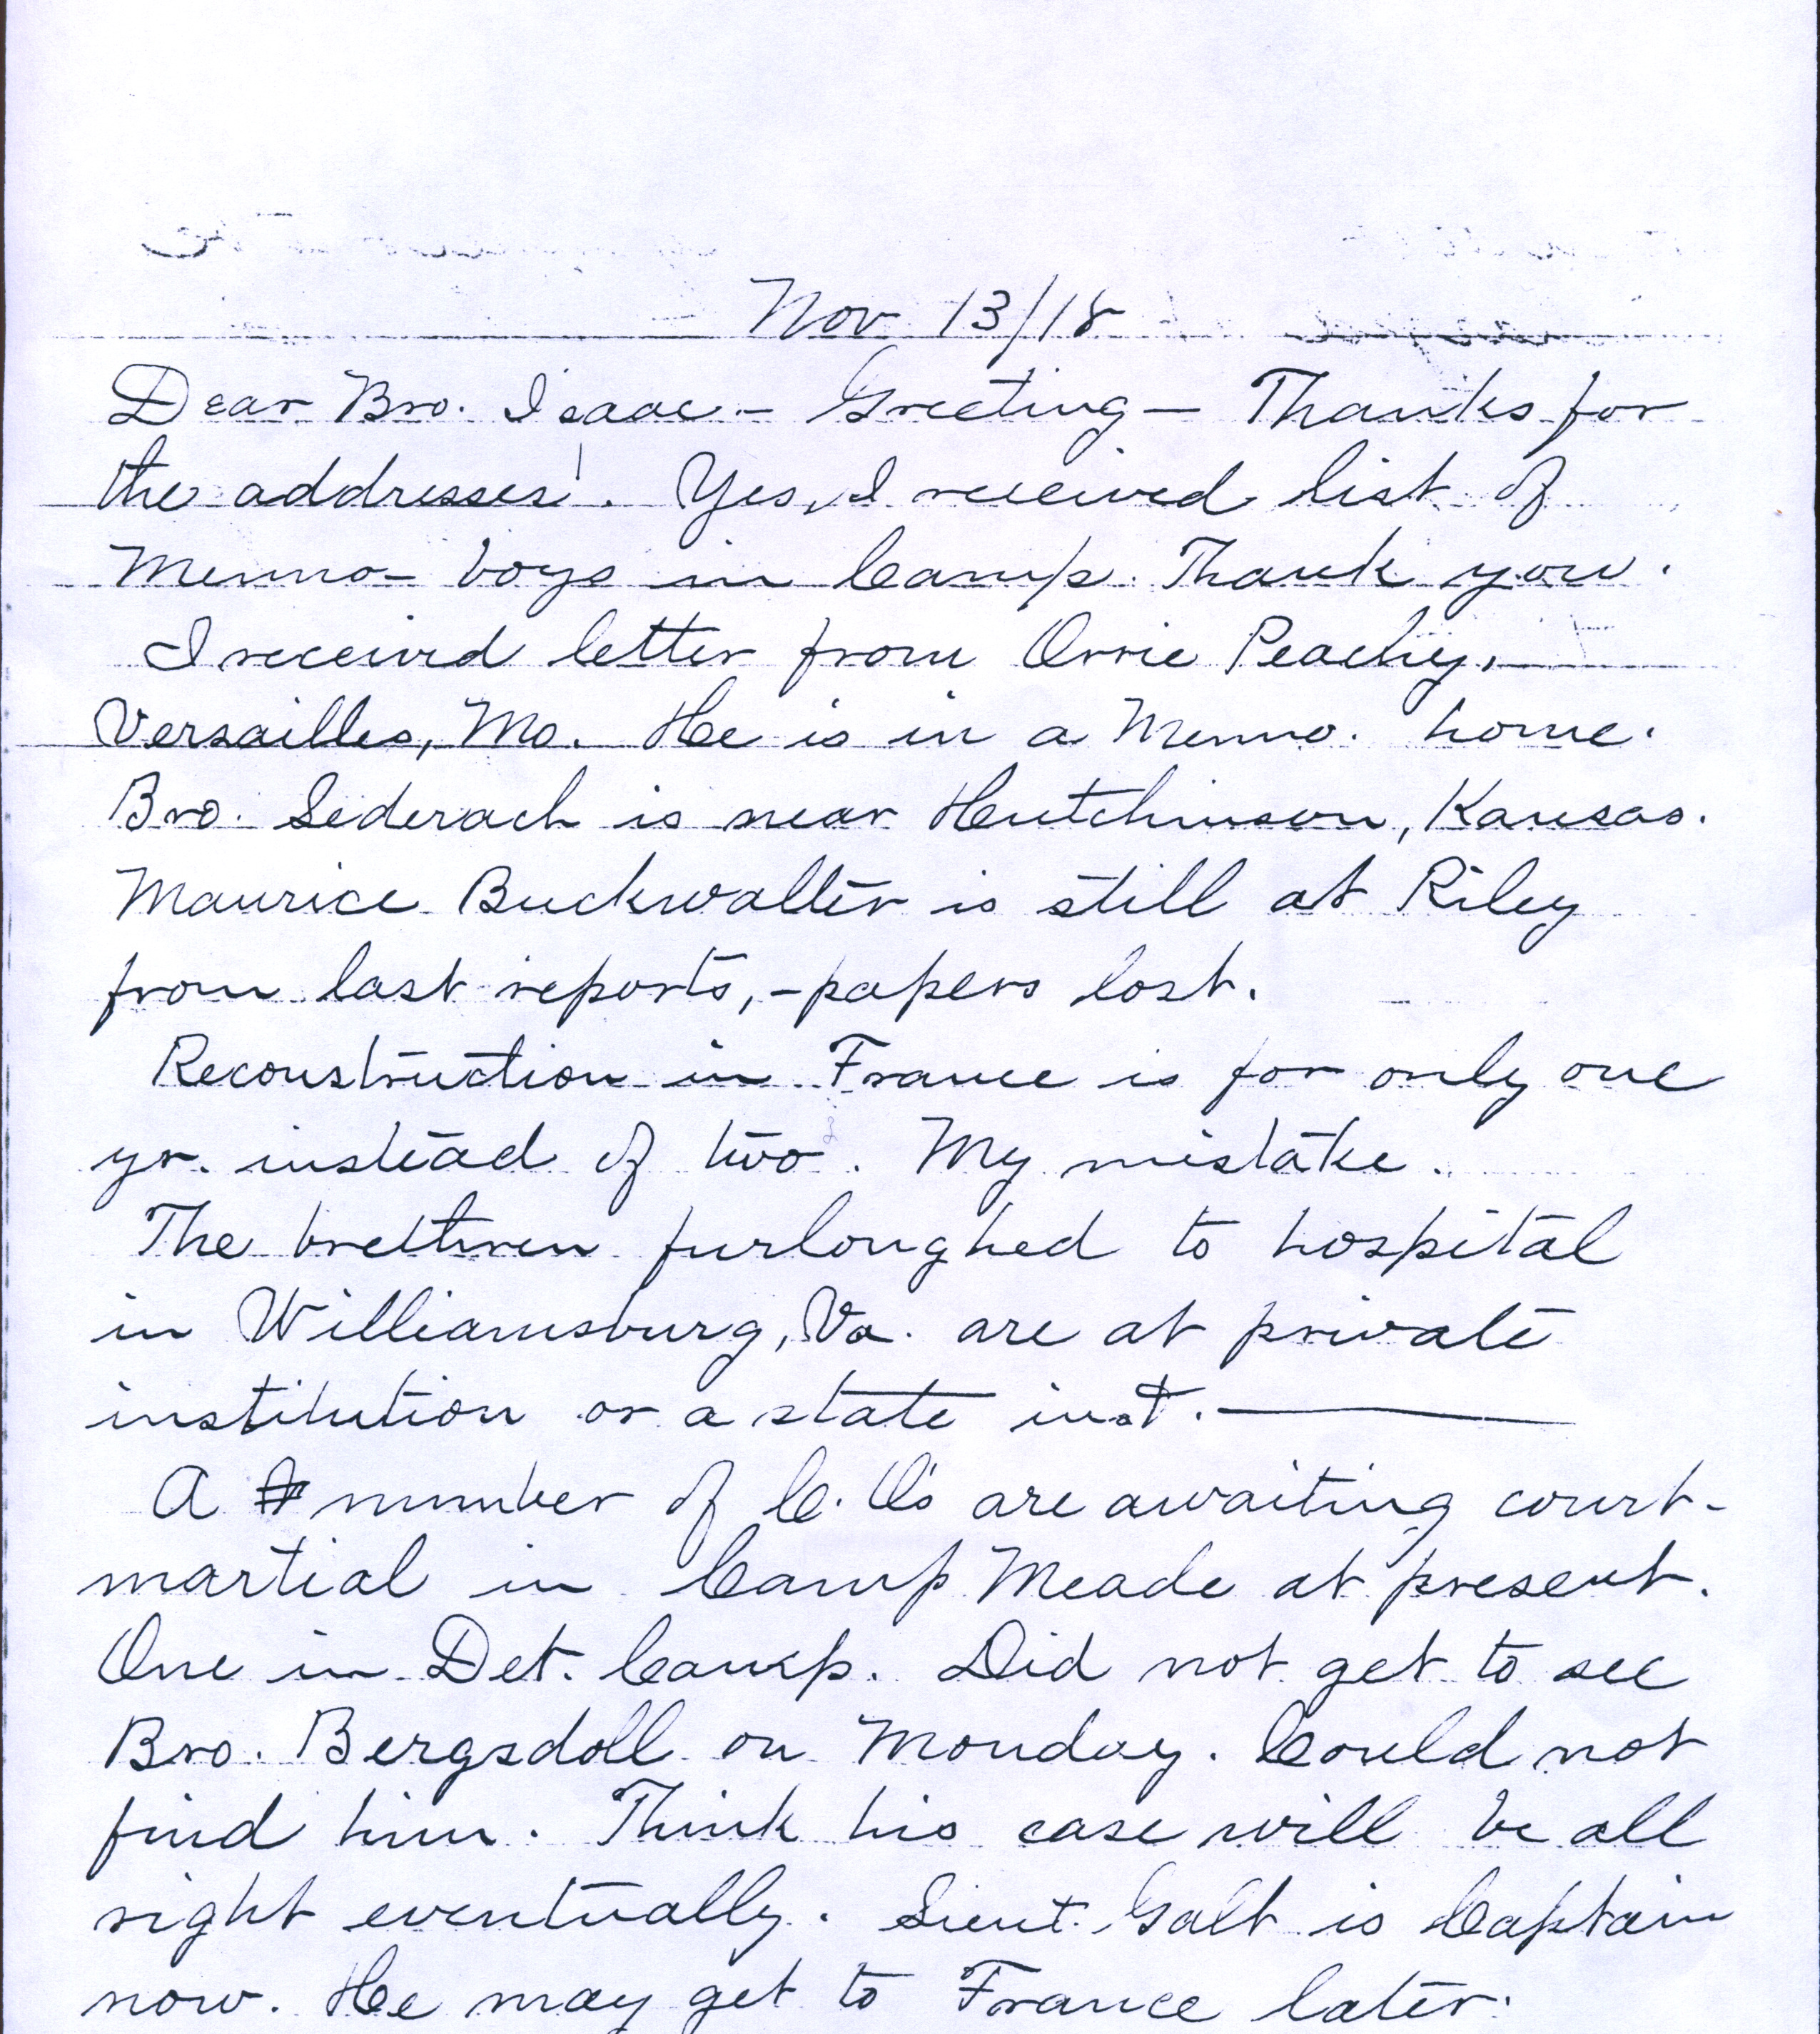 Nov 13/18
Dear Bro. Isaac – Greeting – Thanks for
the addresses. Yes, I received list of
Menno- boys in Camp. Thank you.
I received letter from Orrie Peachey,
Versailles, Mo. He is in a Menno. home.
Bro. Lederach is near Hutchinson, Kansas.
Maurice Buckwalter is still at Riley
from last reports, - papers lost.
Reconstruction in France is for only one
yr. instead of two. My mistake.
The brethren furloughed to hospital
in Williamsburg, Va. are at private
institution or a state inst. ———
A number of C. O's are awaiting court-
martial in Camp Meade at present.
One in Det. Camp. Did not get to see
Bro. Bergsdoll on Monday. Could not
find him. Think his case will be all
right eventually. Lieut. Galt is Captain
now. He may get to France later.